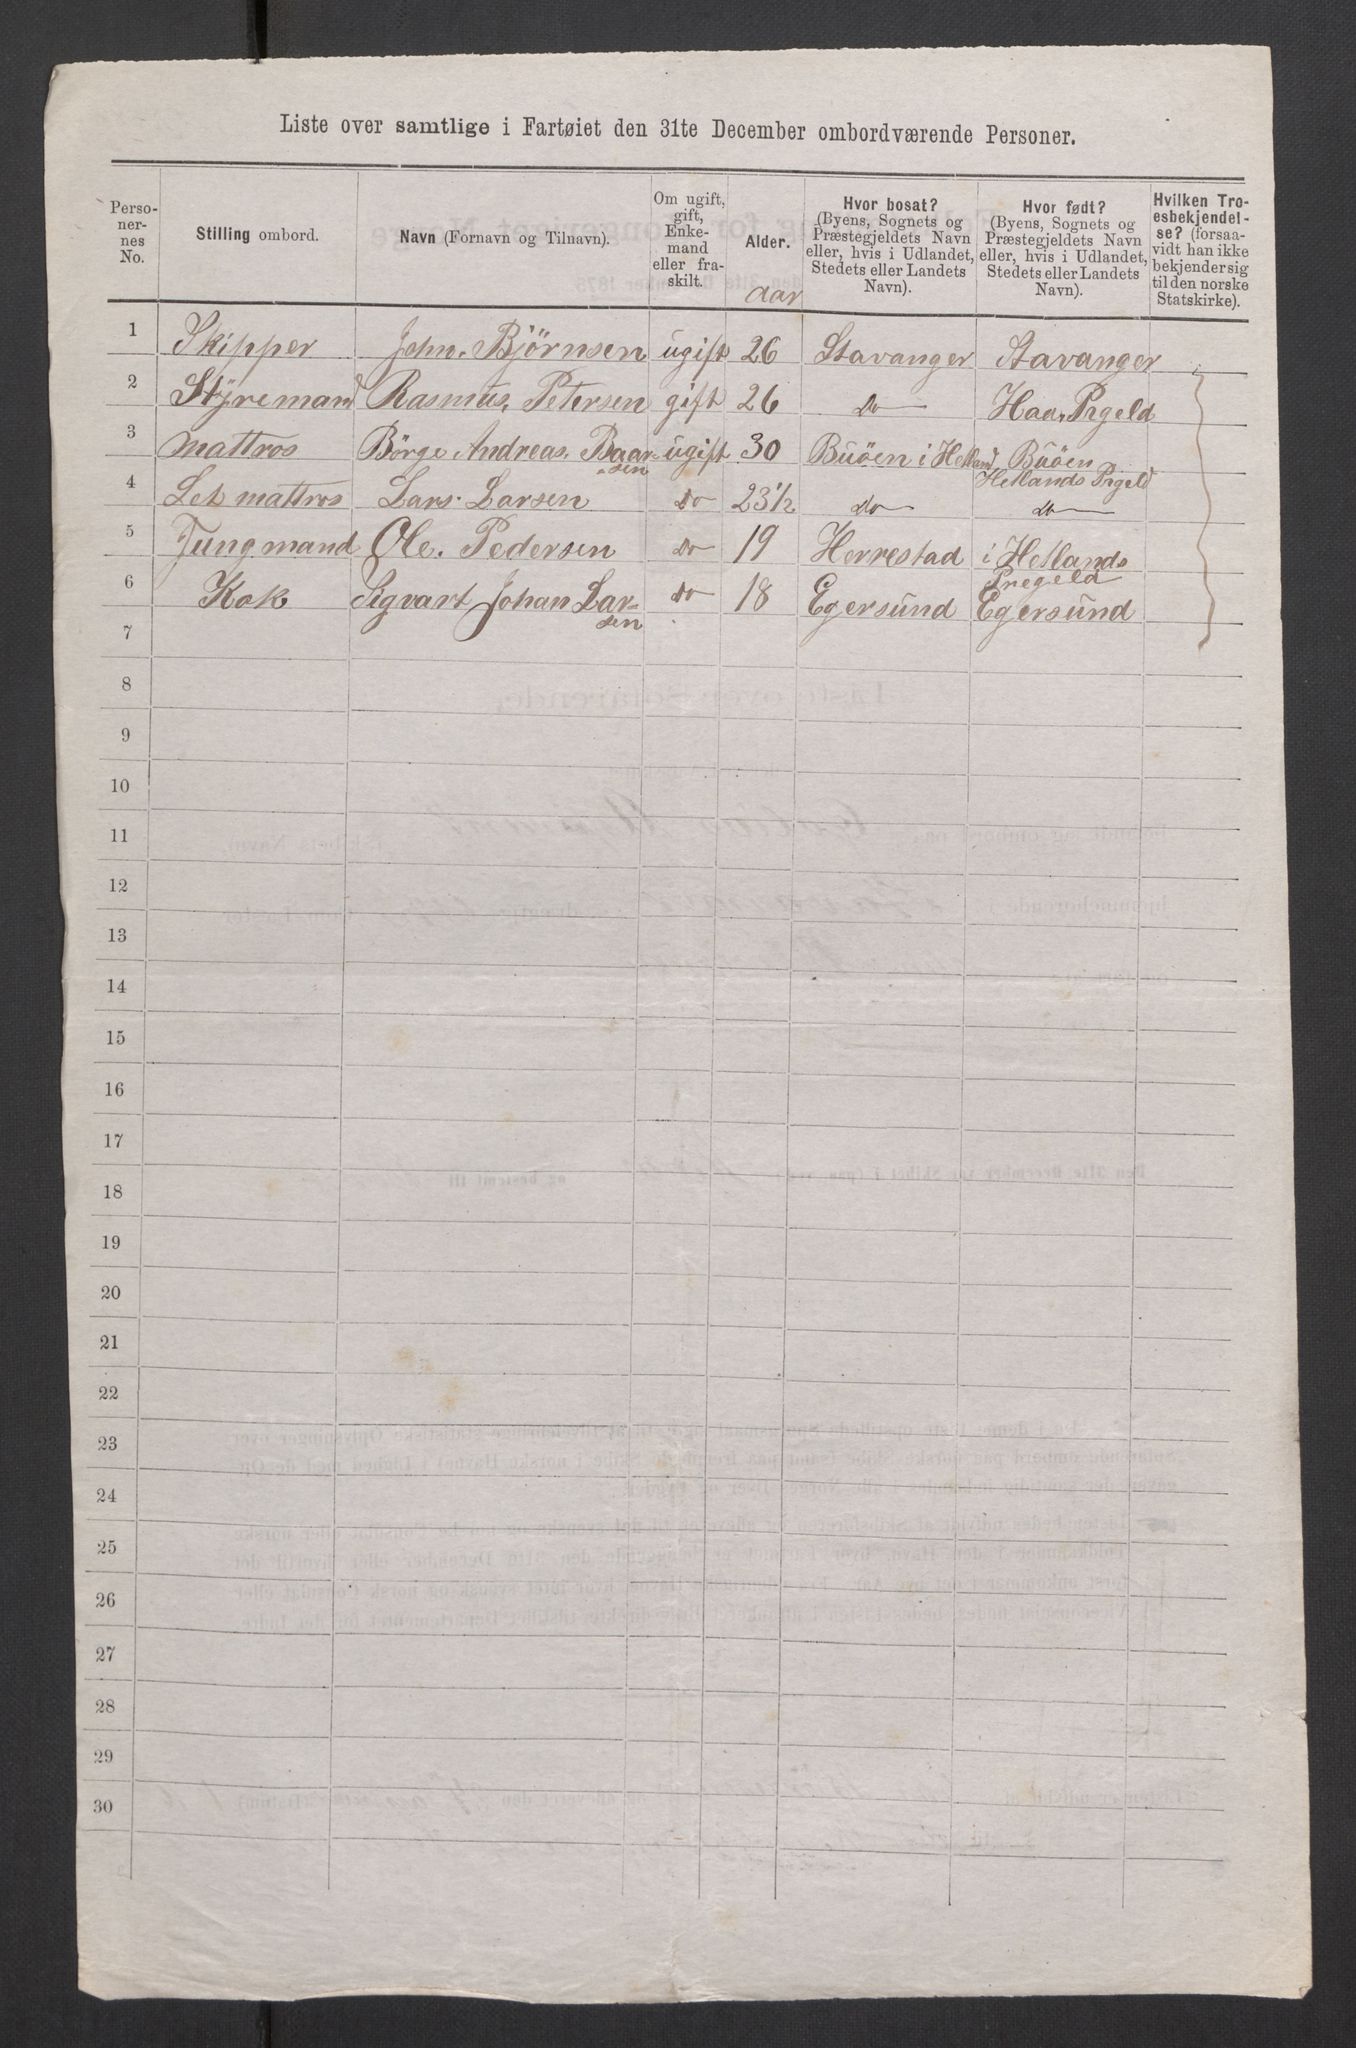 Liste over samtlige i Fartøiet den 31te December ombordværende Personer.
Perso-
ner-
nes
No.
Stilling ombord.
Navn (Fornavn og Tilnavn).
Om ugift,
gift,
Enke-
mand
eller fra-
skilt.
Alder.
Aar
Hvor bosat?
(Byens, Sognets og
Præstegjeldets Navn
eller, hvis i Udlandet,
Stedets eller Landets
Navn).
Hvor født?
(Byens, Sognets og
Præstegjeldets Navn
eller, hvis i Udlandet,
Stedets eller Landets
Navn).
Hvilken Tro-
esbekjendel-
se? (forsaa-
vidt han ikke
bekjender sig
til den norske
Statskirke).
1 Skipper John. Björnsen ugift 26 Stavanger Stavanger
2 Styremand Rasmus. Petersen gift 26 Do Haa, Prgeld
3 Mattros Börge Andreas. Baar- ugift 30 Buöen i Hetland Buöen
sen Hetlands Prgeld
4 Let mattros Lars. Larsen Do 23 1/2 do do
5 Jungmand Ole. Pedersen Do 19 Herrestad i Hetlands
Pregeld
6 Kok Sigvart Johan Lar- Do 18 Egersund Egersund
sen
7
8
9
10
11
12
13
14
15
16
17
18
19
20
21
22
23
24
25
26
27
28
29
30